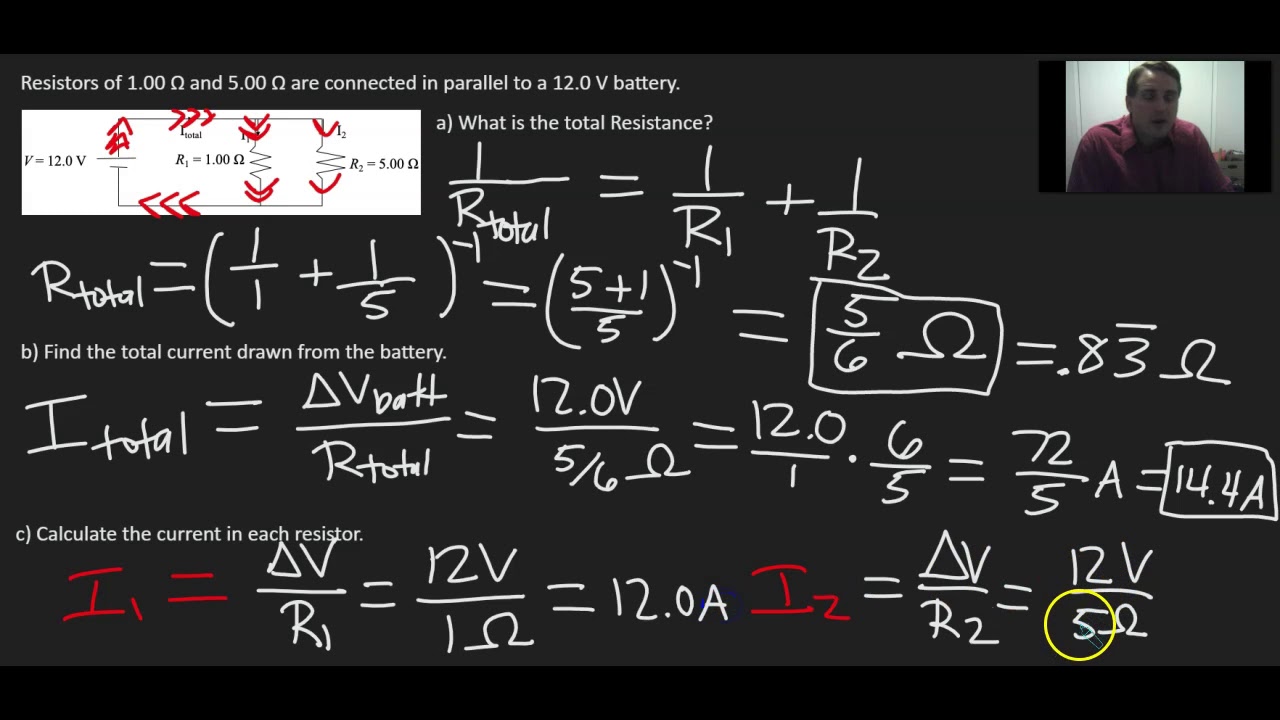 Resistors of 1.00 Ω and 5.00 Ω are connected in parallel to a 12.0 V battery.
V = 12.0 V
I_total
I_1
I_2
R_1 = 1.00 Ω
R_2 = 5.00 Ω
a) What is the total Resistance?
1/R_total = 1/R_1 + 1/R_2
R_total = (1/1 + 1/5)^-1 = ((5+1)/5)^-1 = 5/6 Ω = .83̅ Ω
b) Find the total current drawn from the battery.
I_total = ΔV_batt/R_total = 12.0V/(5/6 Ω) = 12.0/1 · 6/5 = 72/5 A = 14.4A
c) Calculate the current in each resistor.
I_1 = ΔV/R_1 = 12V/1Ω = 12.0A I_2 = ΔV/R_2 = 12V/5Ω